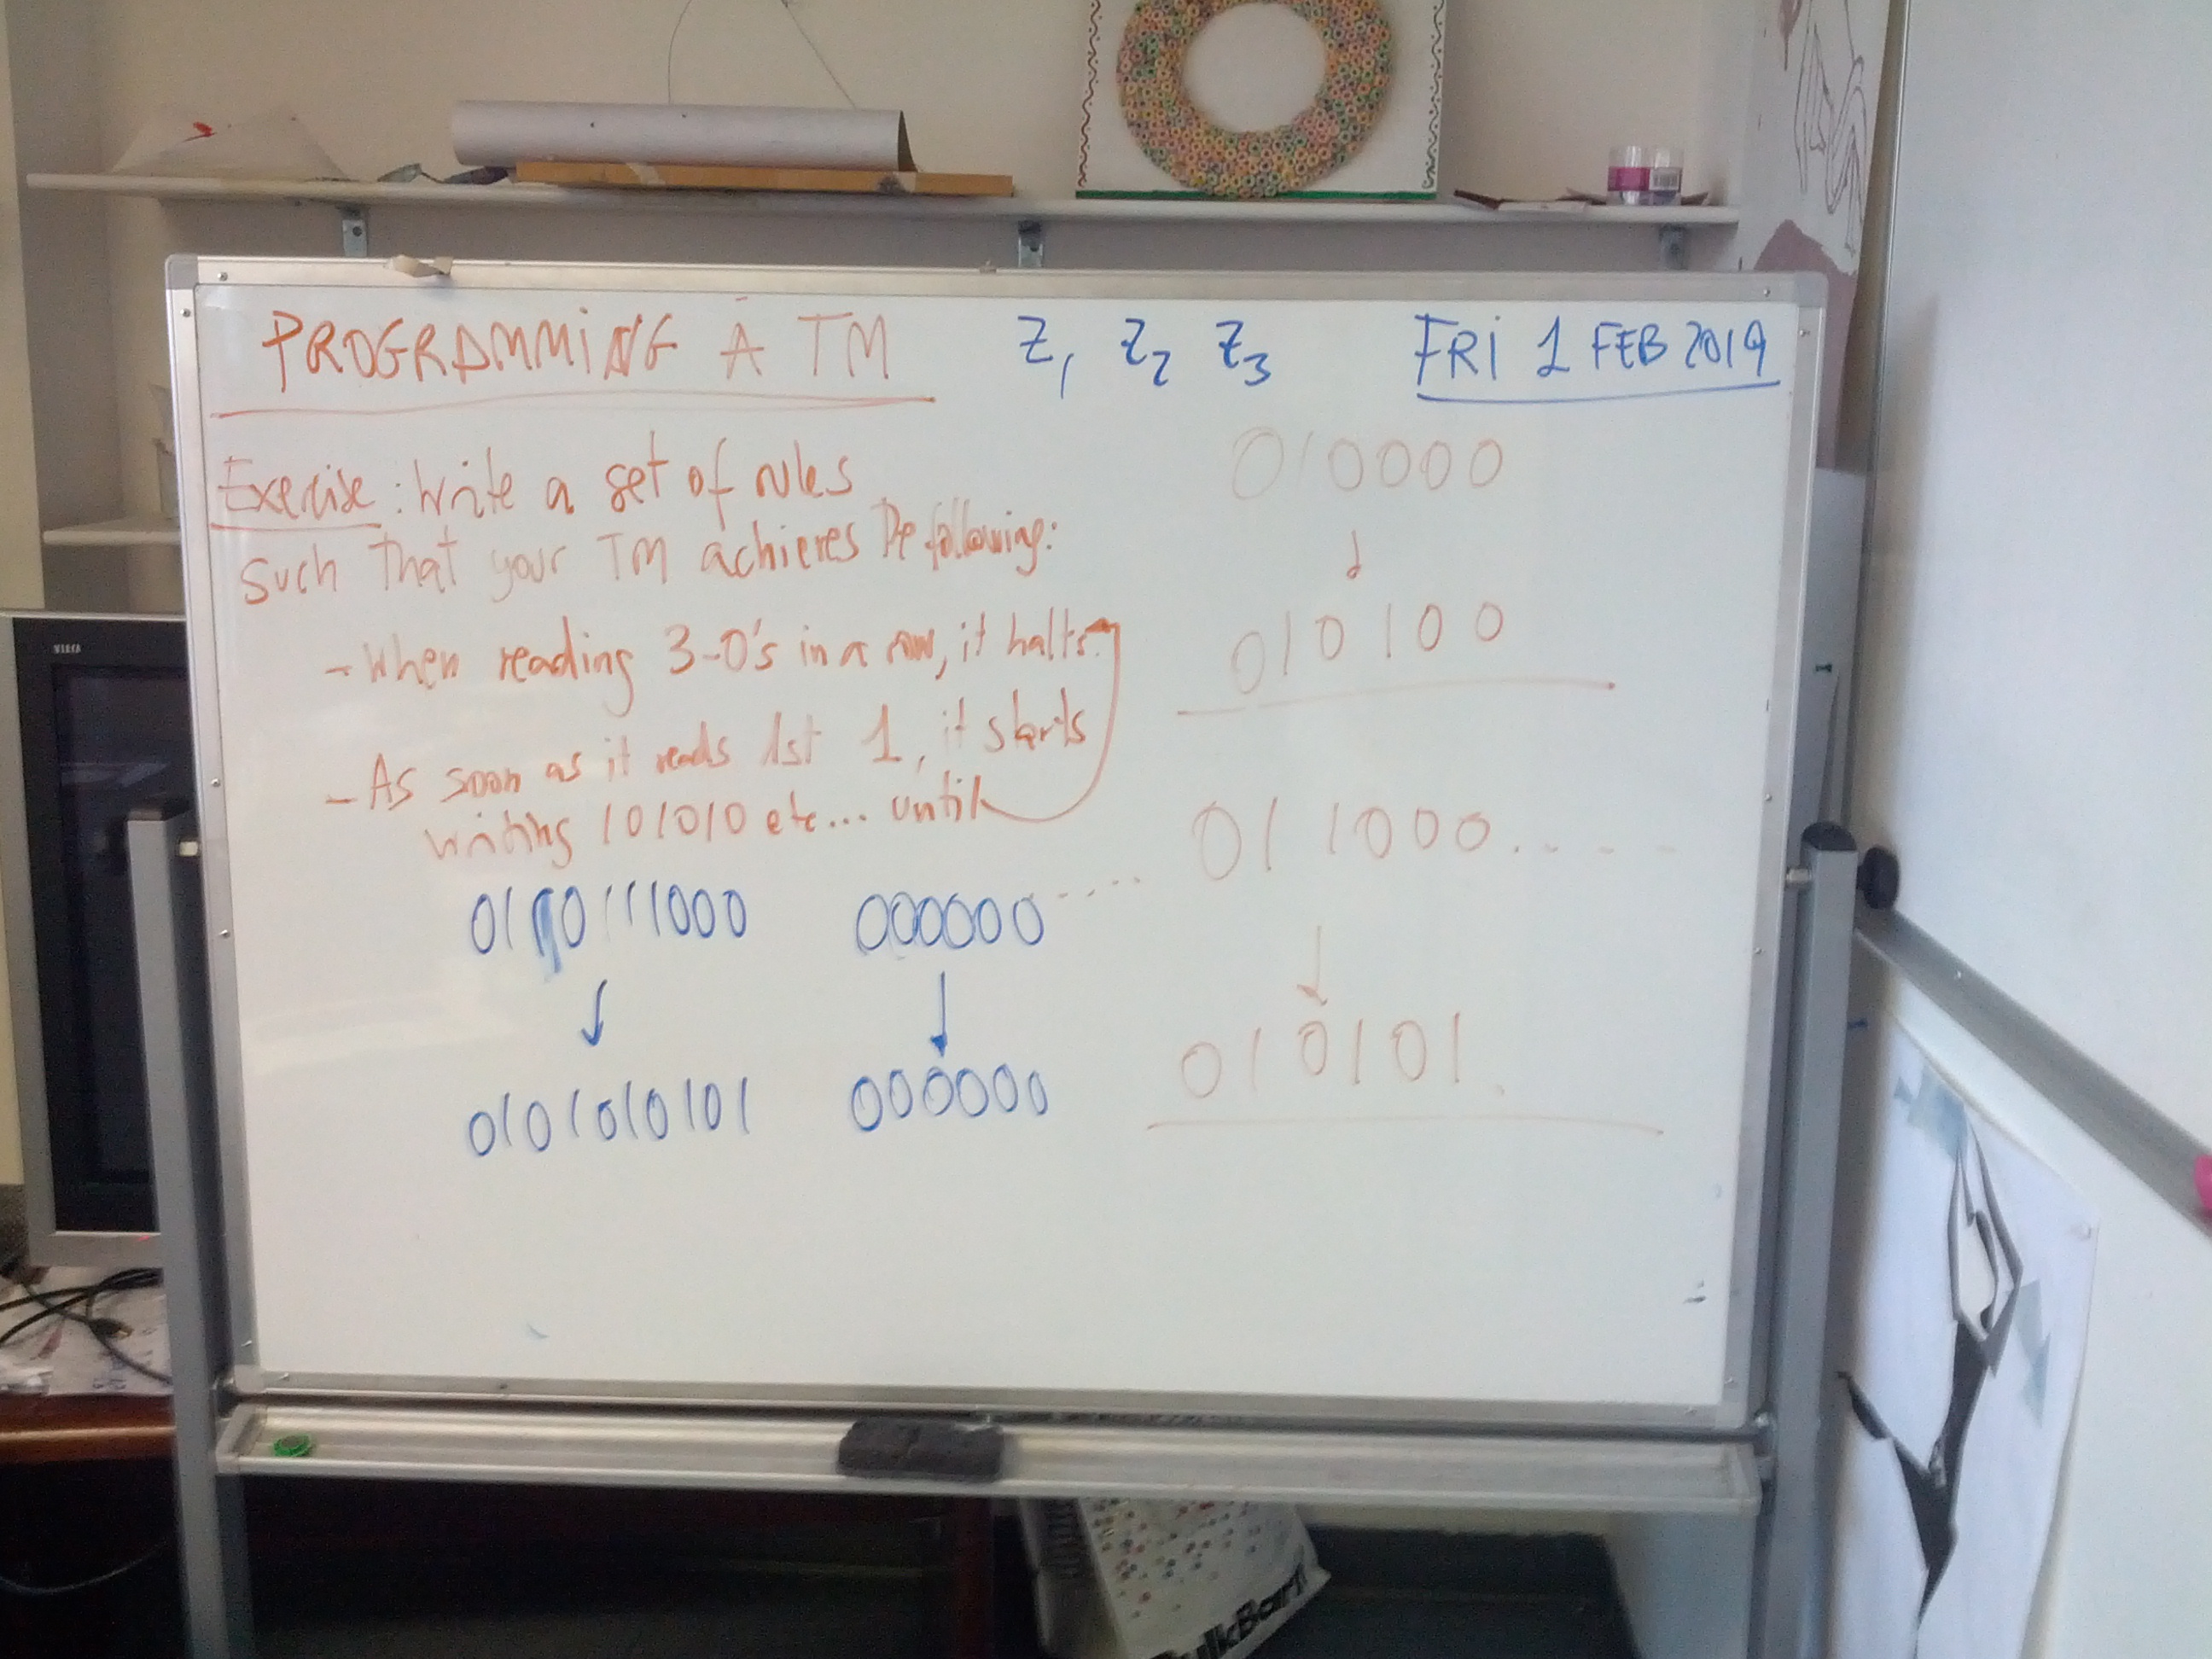 PROGRAMMING A TM Z1 Z2 Z3 FRI 1 FEB 2019
Exercise: Write a set of rules
such that your TM achieves the following:
- When reading 3-0's in a row, it halts.
- As soon as it reads 1st 1, it starts
writing 101010 etc... until
000000 ....
0101010101 000000
010000
010100
011000.....
010101.